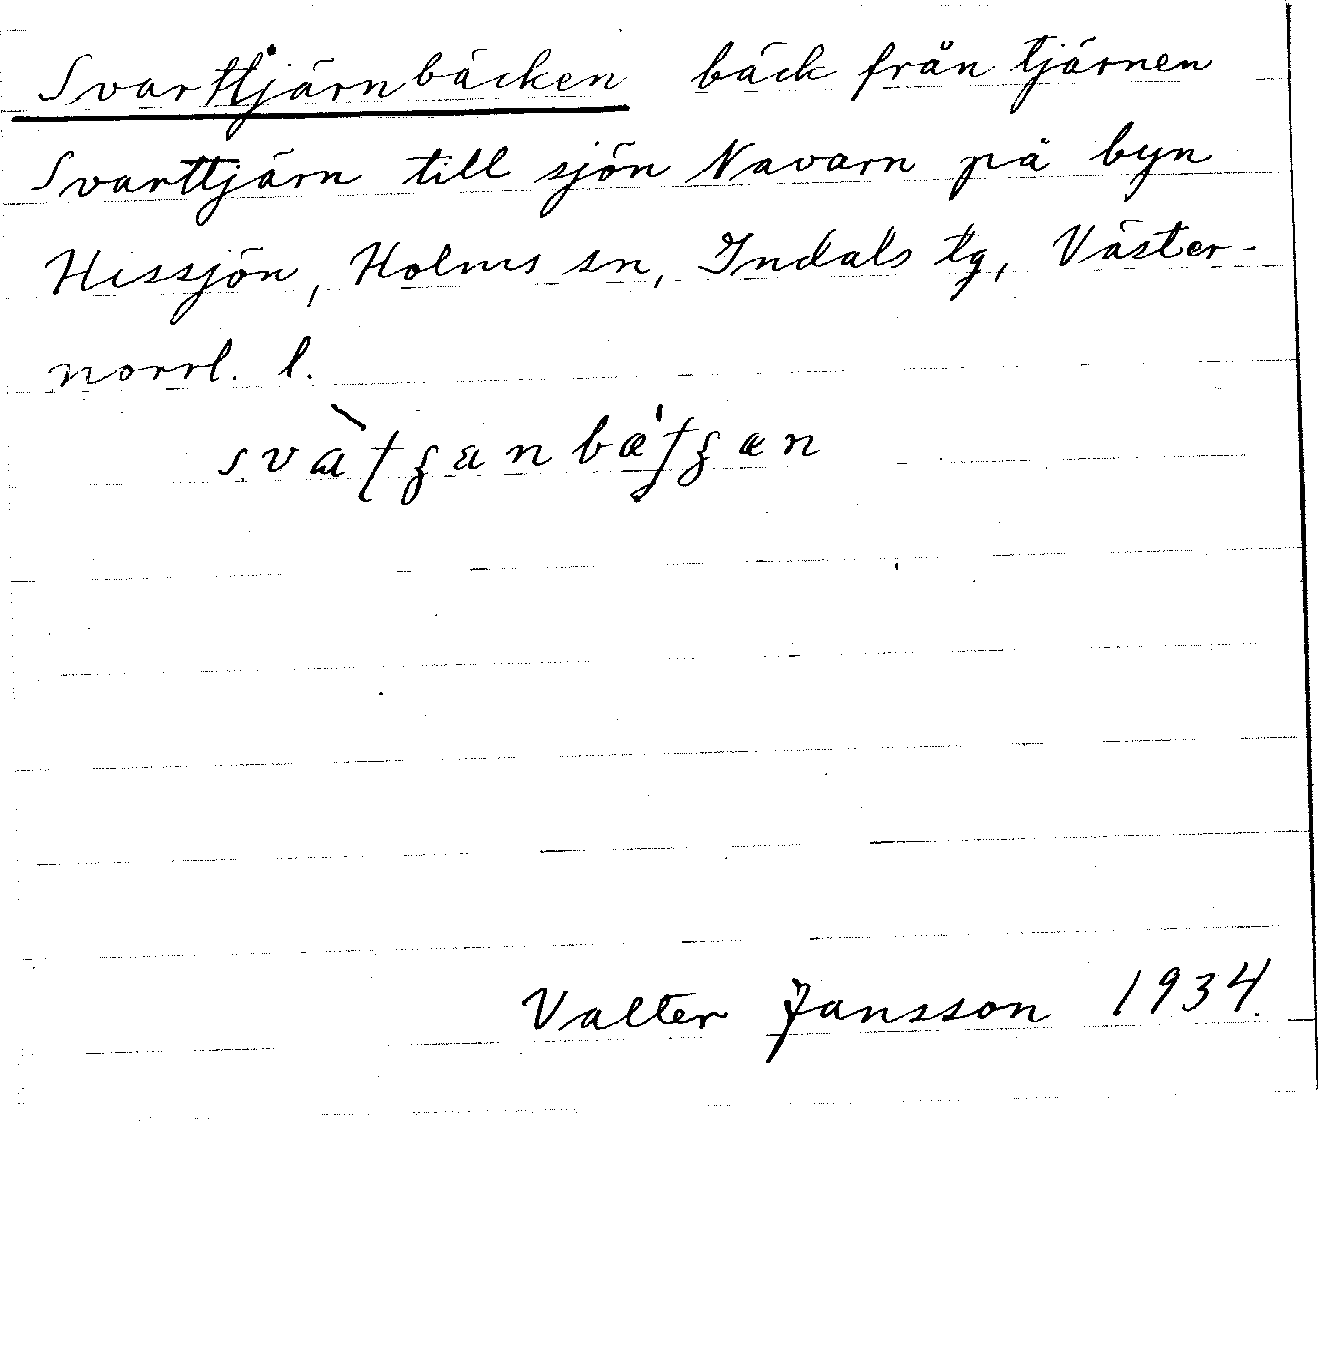 Svarttjärnbäcken bäck från tjärnen
Svarttjärn till sjön Navarn på byn
Hissjön, Holms sn, Indals tg, Väster-
norrl. l.
Valter Jansson 1934.